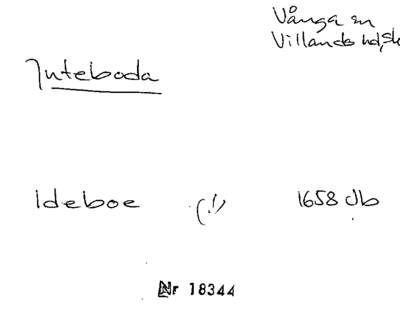 Vånga sn
Villands hd, Sk
Inteboda
Ideboe (!) 1658 Jb
Nr 18344